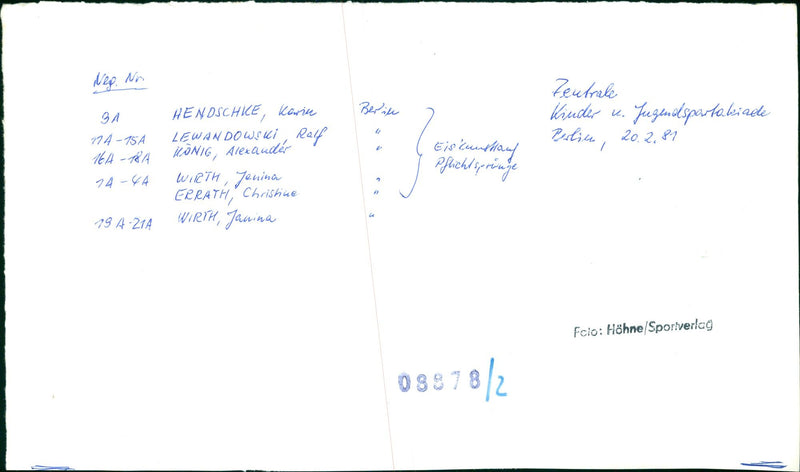 Neg. Nr.
9A HENDSCHKE, Karin Berlin
11A-15A LEWANDOWSKI, Ralf "
16A-18A KÖNIG, Alexander "
1A-4A WIRTH, Janina "
ERRATH, Christine "
19A-21A WIRTH, Janina "
Eiskunstlauf
Pflichtsprünge
Zentrale
Kinder u. Jugendspartakiade
Berlin, 20.2.81
Foto: Höhne/Sportverlag
08878/2